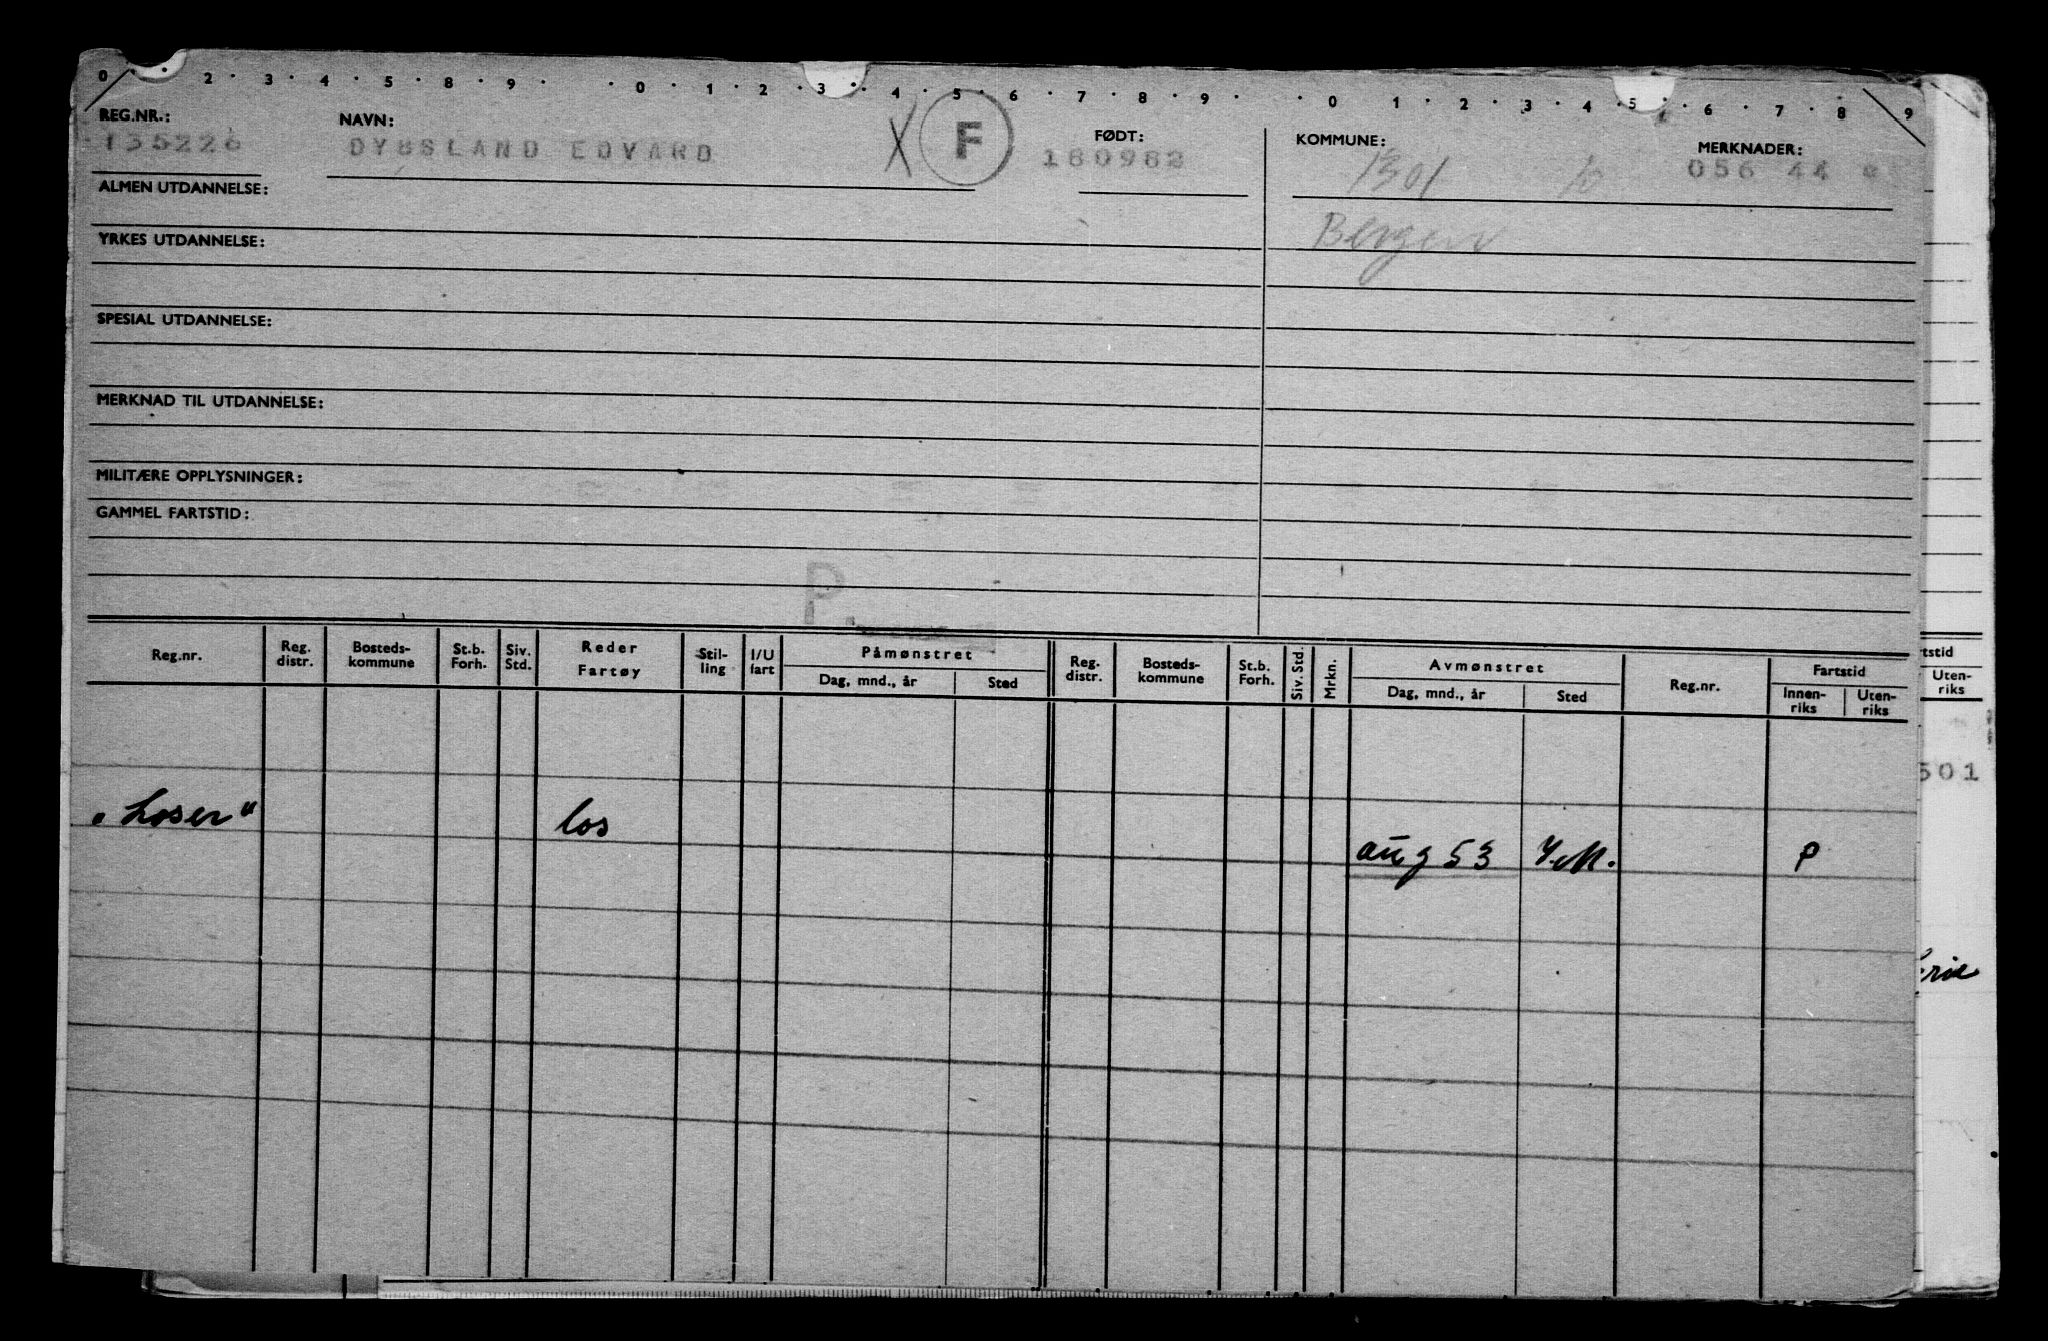 0 · 2 · 3 · 4 · 5 · 8 · 9 · · 0 · 1 · 2 · 3 · · 4 · 5 · 6 · 7 · 8 · 9 · · 0 · 1 · 2 · 3 · 4 · 5 · · 6 · 7 · 8 · 9
REG.NR.: NAVN: F FØDT: KOMMUNE: MERKNADER:
135226 DYBSLAND EDVARD X 180982 1301 056 44
ALMEN UTDANNELSE:
Bergen
YRKES UTDANNELSE:
SPESIAL UTDANNELSE:
MERKNAD TIL UTDANNELSE:
MILITÆRE OPPLYSNINGER:
GAMMEL FARTSTID:
P.
Reg.nr. Reg. distr. Bosteds- kommune St.b. Forh. Siv. Std. Reder Fartøy Stil- ling I/U fart Påmønstret Dag, mnd., år Sted Reg. distr. Bosteds- kommune St.b. Forh. Siv. Std. Mrkn. Avmønstret Dag, mnd., år Sted Reg.nr. Fartstid Innen- riks Uten- riks
rtstid
Uten-
riks
501
"Loser" los aug 53 P